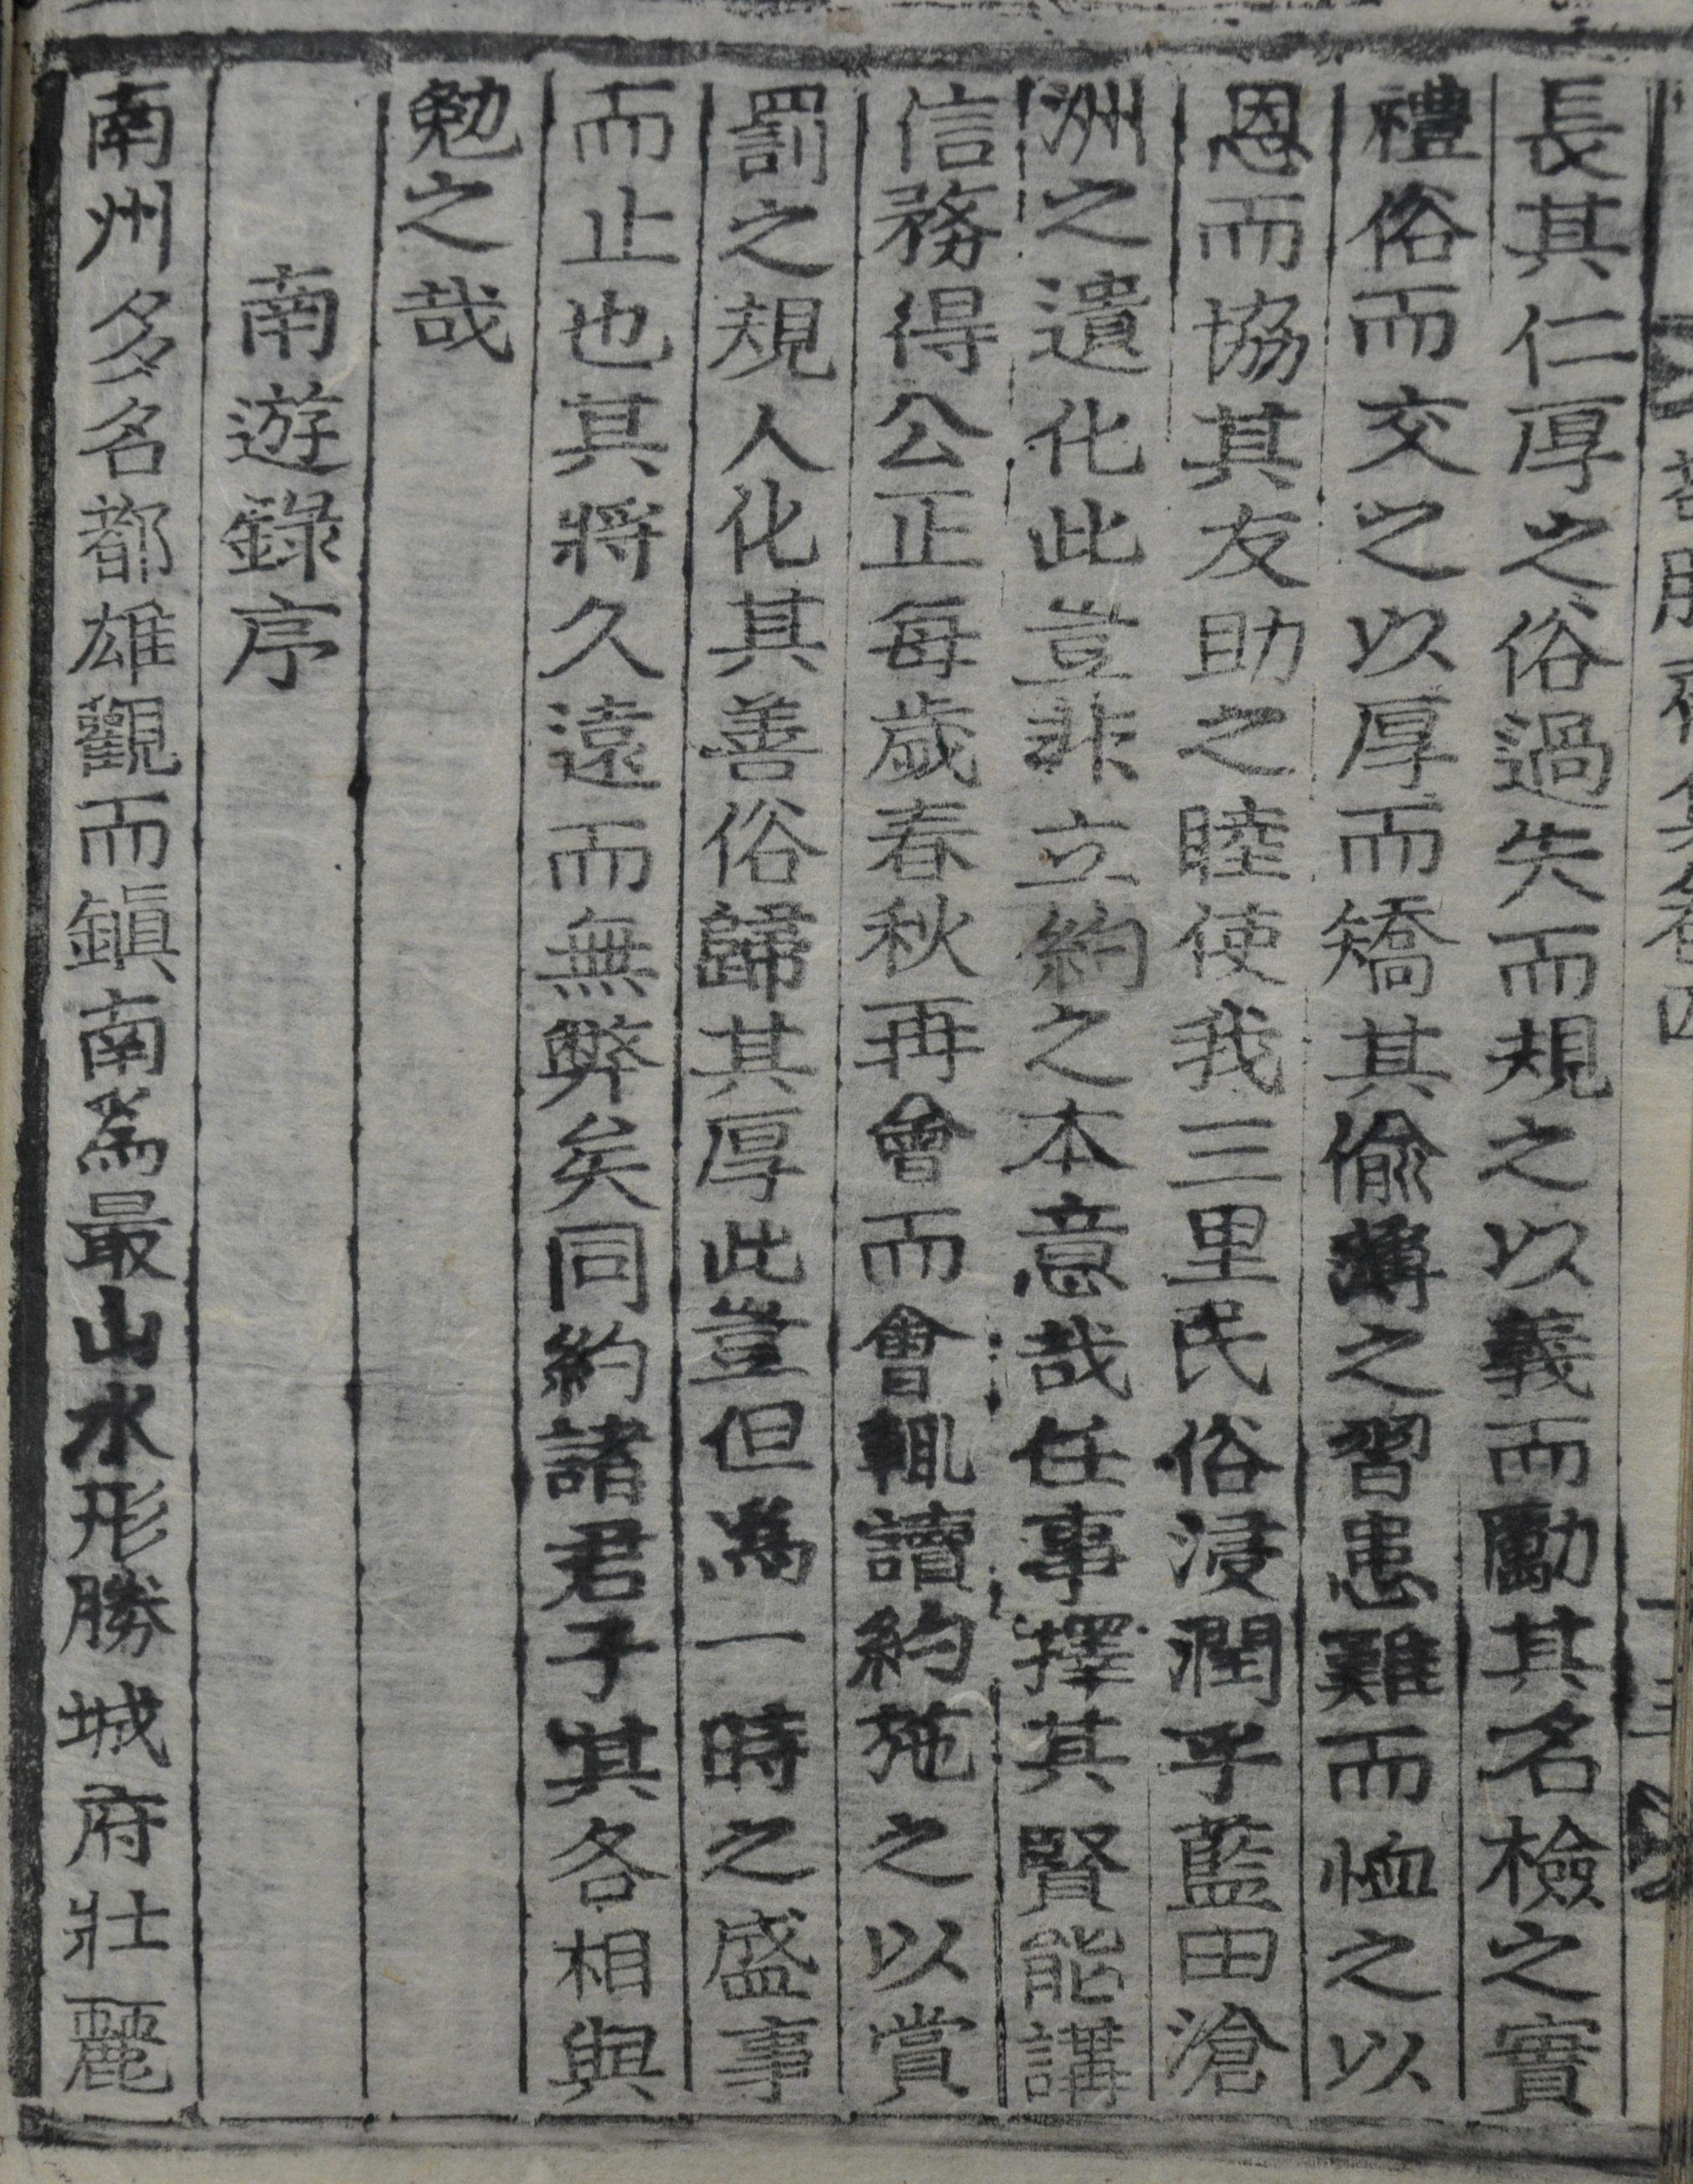 長其仁厚之俗過失而規之以義而勵其名檢之實
禮俗而交之以厚而矯其偸薄之習患難而恤之以
恩而協其友助之睦使我三里民俗浸潤乎藍田滄
洲之遺化此豈非立約之本意哉任事擇其賢能講
信務得公正每歲春秋再會而會輒讀約施之以賞
罰之規人化其善俗歸其厚此豈但爲一時之盛事
而止也其將久遠而無弊矣同約諸君子其各相與
勉之哉
南遊錄序
南州多名都雄觀而鎭南爲最山水形勝城府壯麗